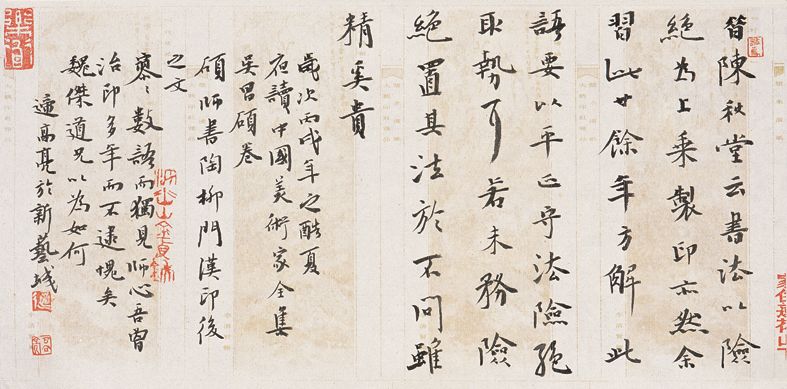 昔陳秋堂云書法以險
絕為上乘製印亦然余
習此廿餘年方解此
語要以平正守法險絕
取勢耳若未務險
絕置其法於不問雖
精奚貴
歲次丙戌年之酷夏
夜讀中國美術家全集
吳昌碩卷
碩師書陶柳門漢印後
之文
寥〻數語而獨見師心吾曾
治印多年而不逮愧矣
魏傑道兄以為如何
適高亮於新藝城